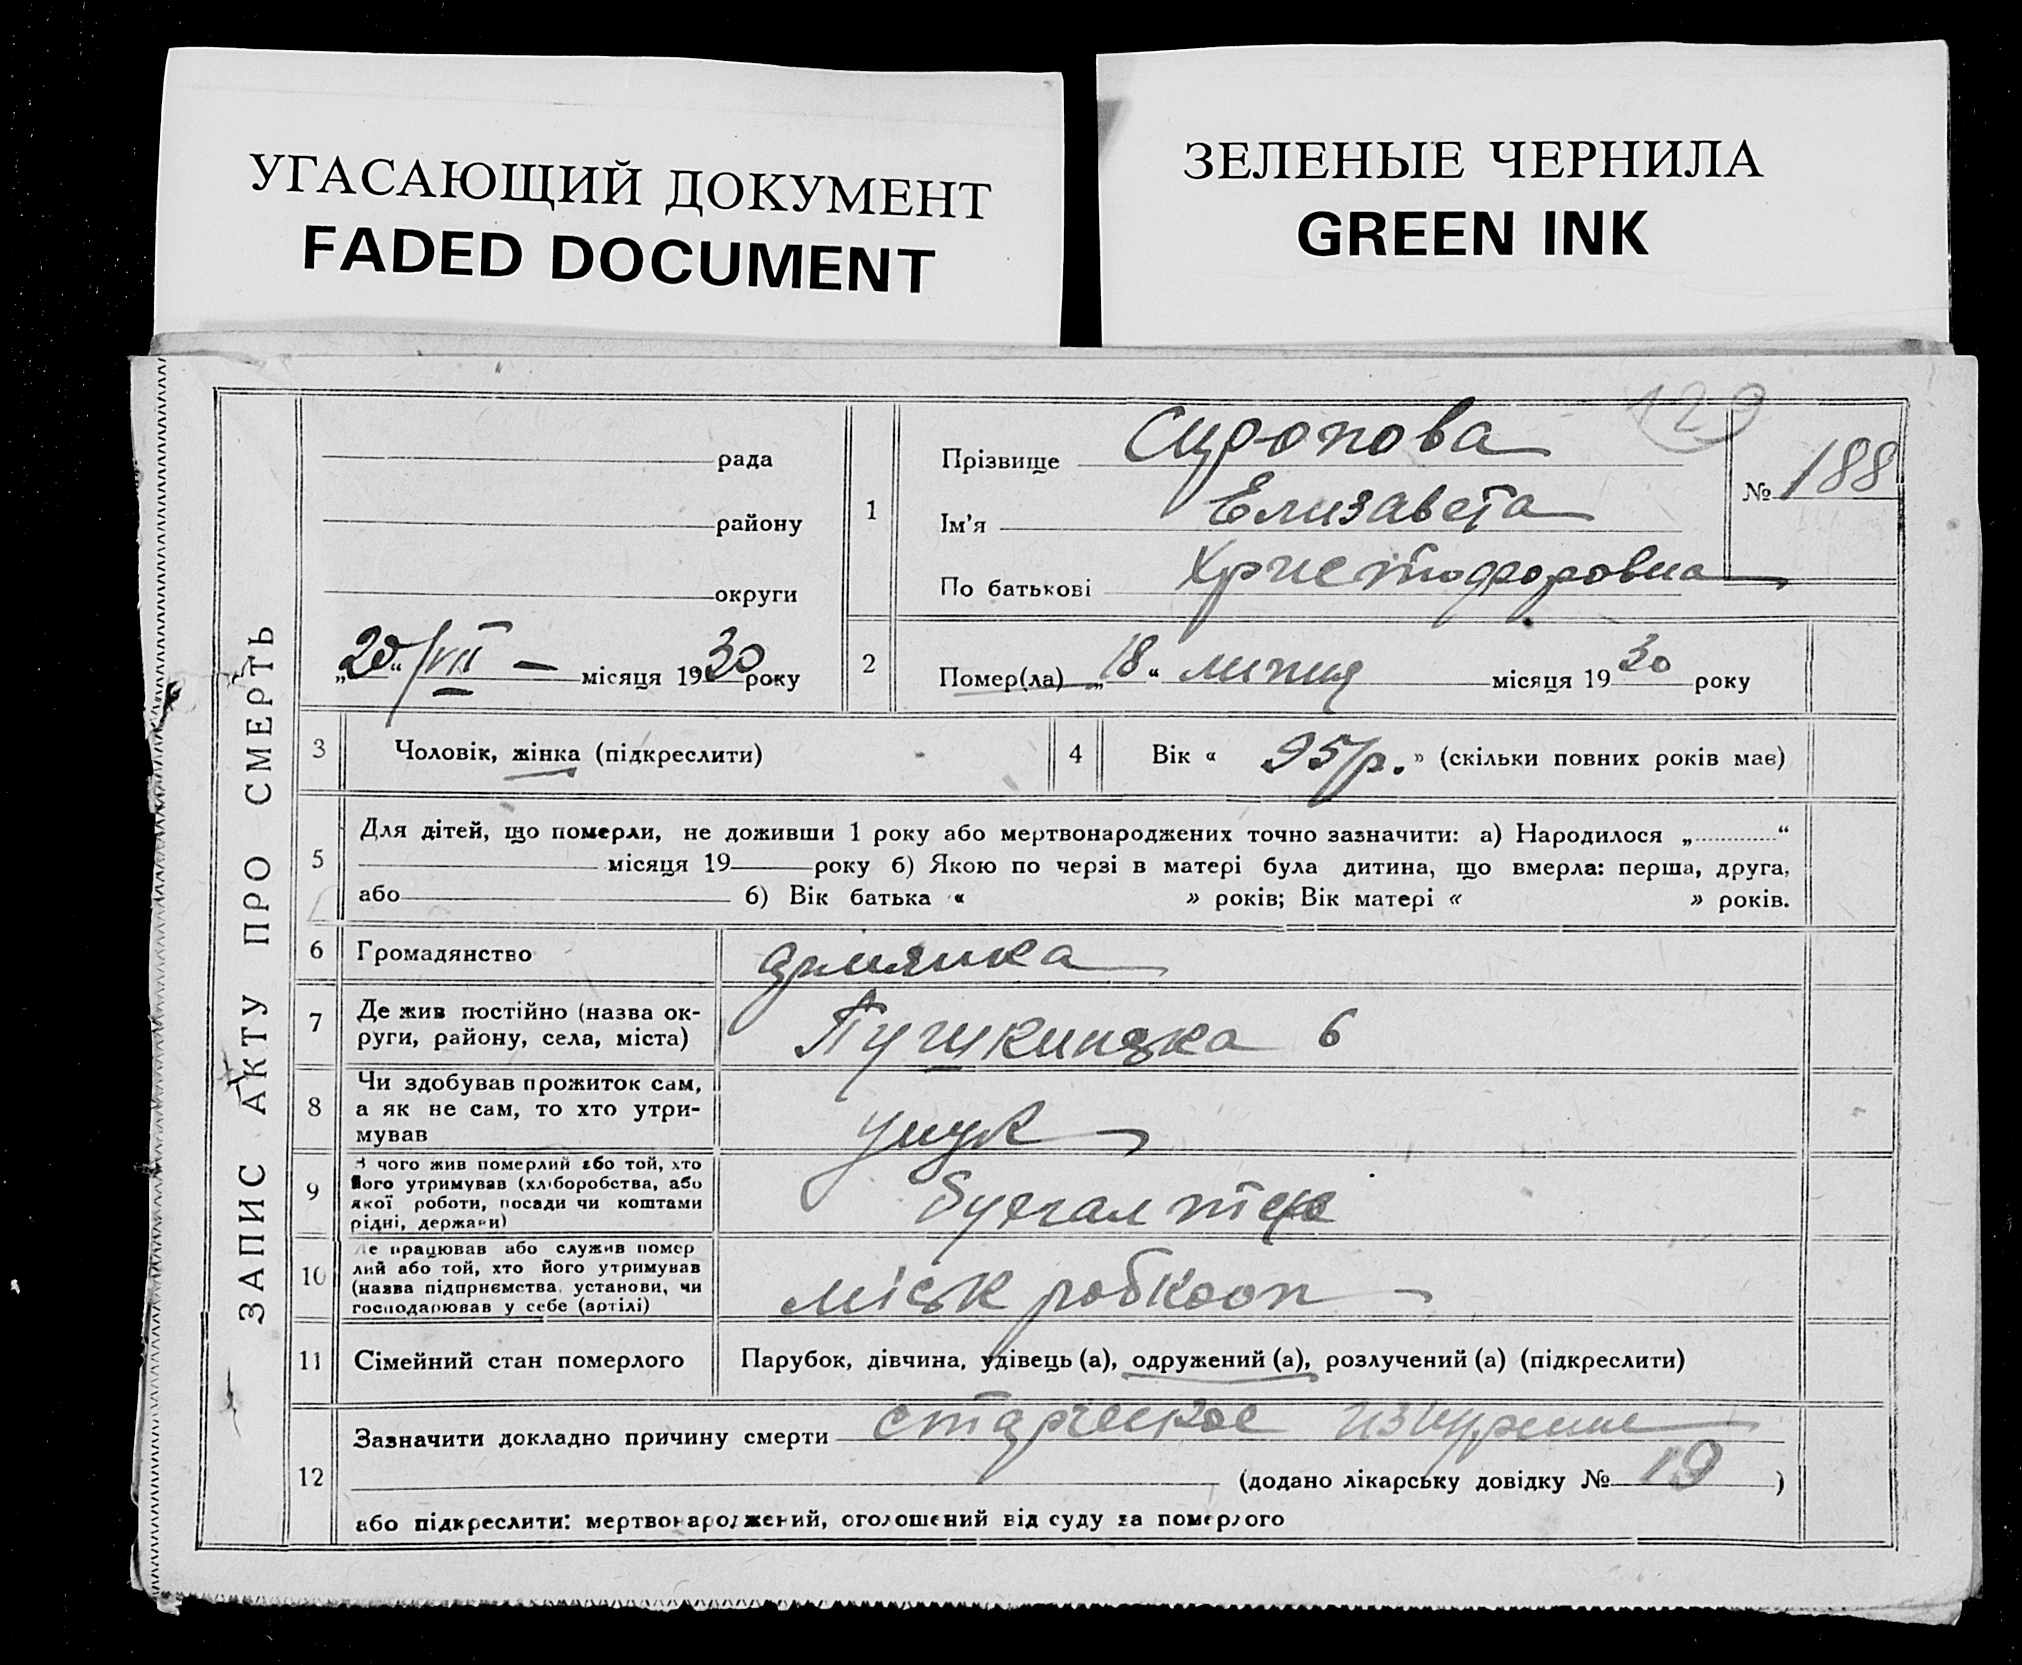 УГАСАЮЩИЙ ДОКУМЕНТ
FADED DOCUMENT
ЗЕЛЕНЫЕ ЧЕРНИЛА
GREEN INK
ЗАПИС АКТУ ПРО СМЕРТЬ
рада
району
округи
„20“/VII — місяця 1930 року
129
1
Прізвище Сиропова
Ім'я Елизавета
По батькові Христофоровна
№ 188
2
Помер(ла) „18“ липня місяця 1930 року
3
Чоловік, жінка (підкреслити)
4
Вік « 95/р. » (скільки повних років має)
5
Для дітей, що померли, не доживши 1 року або мертвонароджених точно зазначити: а) Народилося „ “
місяця 19 року б) Якою по черзі в матері була дитина, що вмерла: перша, друга,
або б) Вік батька « » років; Вік матері « » років.
6
Громадянство армянка
7
Де жив постійно (назва ок-
руги, району, села, міста)
Пушкинска 6
8
Чи здобував прожиток сам,
а як не сам, то хто утри-
мував
унук
9
З чого жив померлий або той, хто
його утримував (хліборобства, або
якої роботи, посади чи коштами
рідні, держави)
бухгалтер
10
Де працював або служив помер
лий або той, хто його утримував
(назва підприємства, установи, чи
господарював у себе (артілі)
міськ робкооп
11
Сімейний стан померлого
Парубок, дівчина, удівець (а), одружений (а), розлучений (а) (підкреслити)
12
Зазначити докладно причину смерти старческое изнурение
(додано лікарську довідку № 19 )
або підкреслити: мертвонароджений, оголошений від суду за померлого